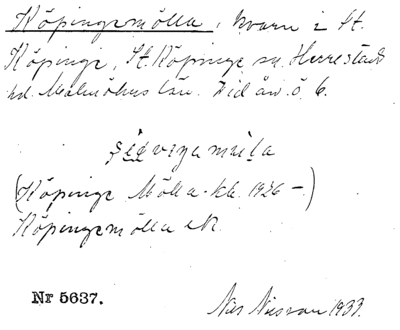 Köpingemölla, kvarn i St.
Köpinge, St. Köpinge sn. Herrestads
hd. Malmöhus län. Vid ån ö. 6.
(Köpinge Mölla kb. 1926 –)
Köpingemölla ek.
Nr 5637.
Nils Nilsson 1933.